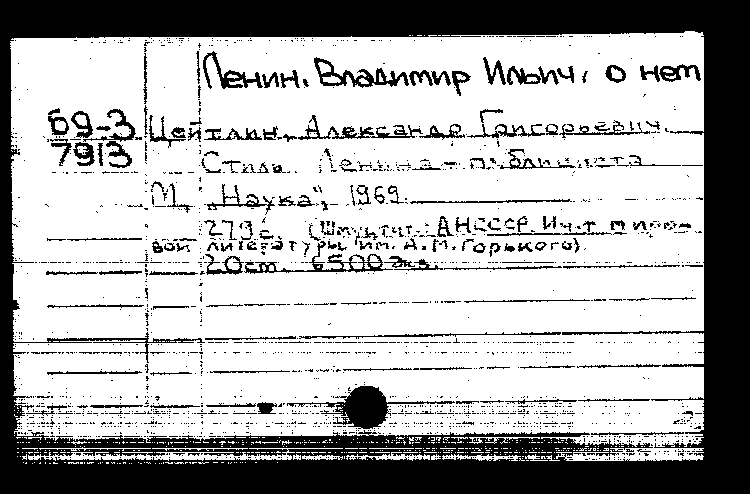 Ленин, Владимир Ильич, о нем
69-3
7913
Цейтлин, Александр Григорьевич.
Стиль Ленина - публициста.
М., „Наука", 1969.
279 с. (АН СССР. Ин-т миро-
вой литературы им. А.М. Горького)
20 см. 6500 экз.